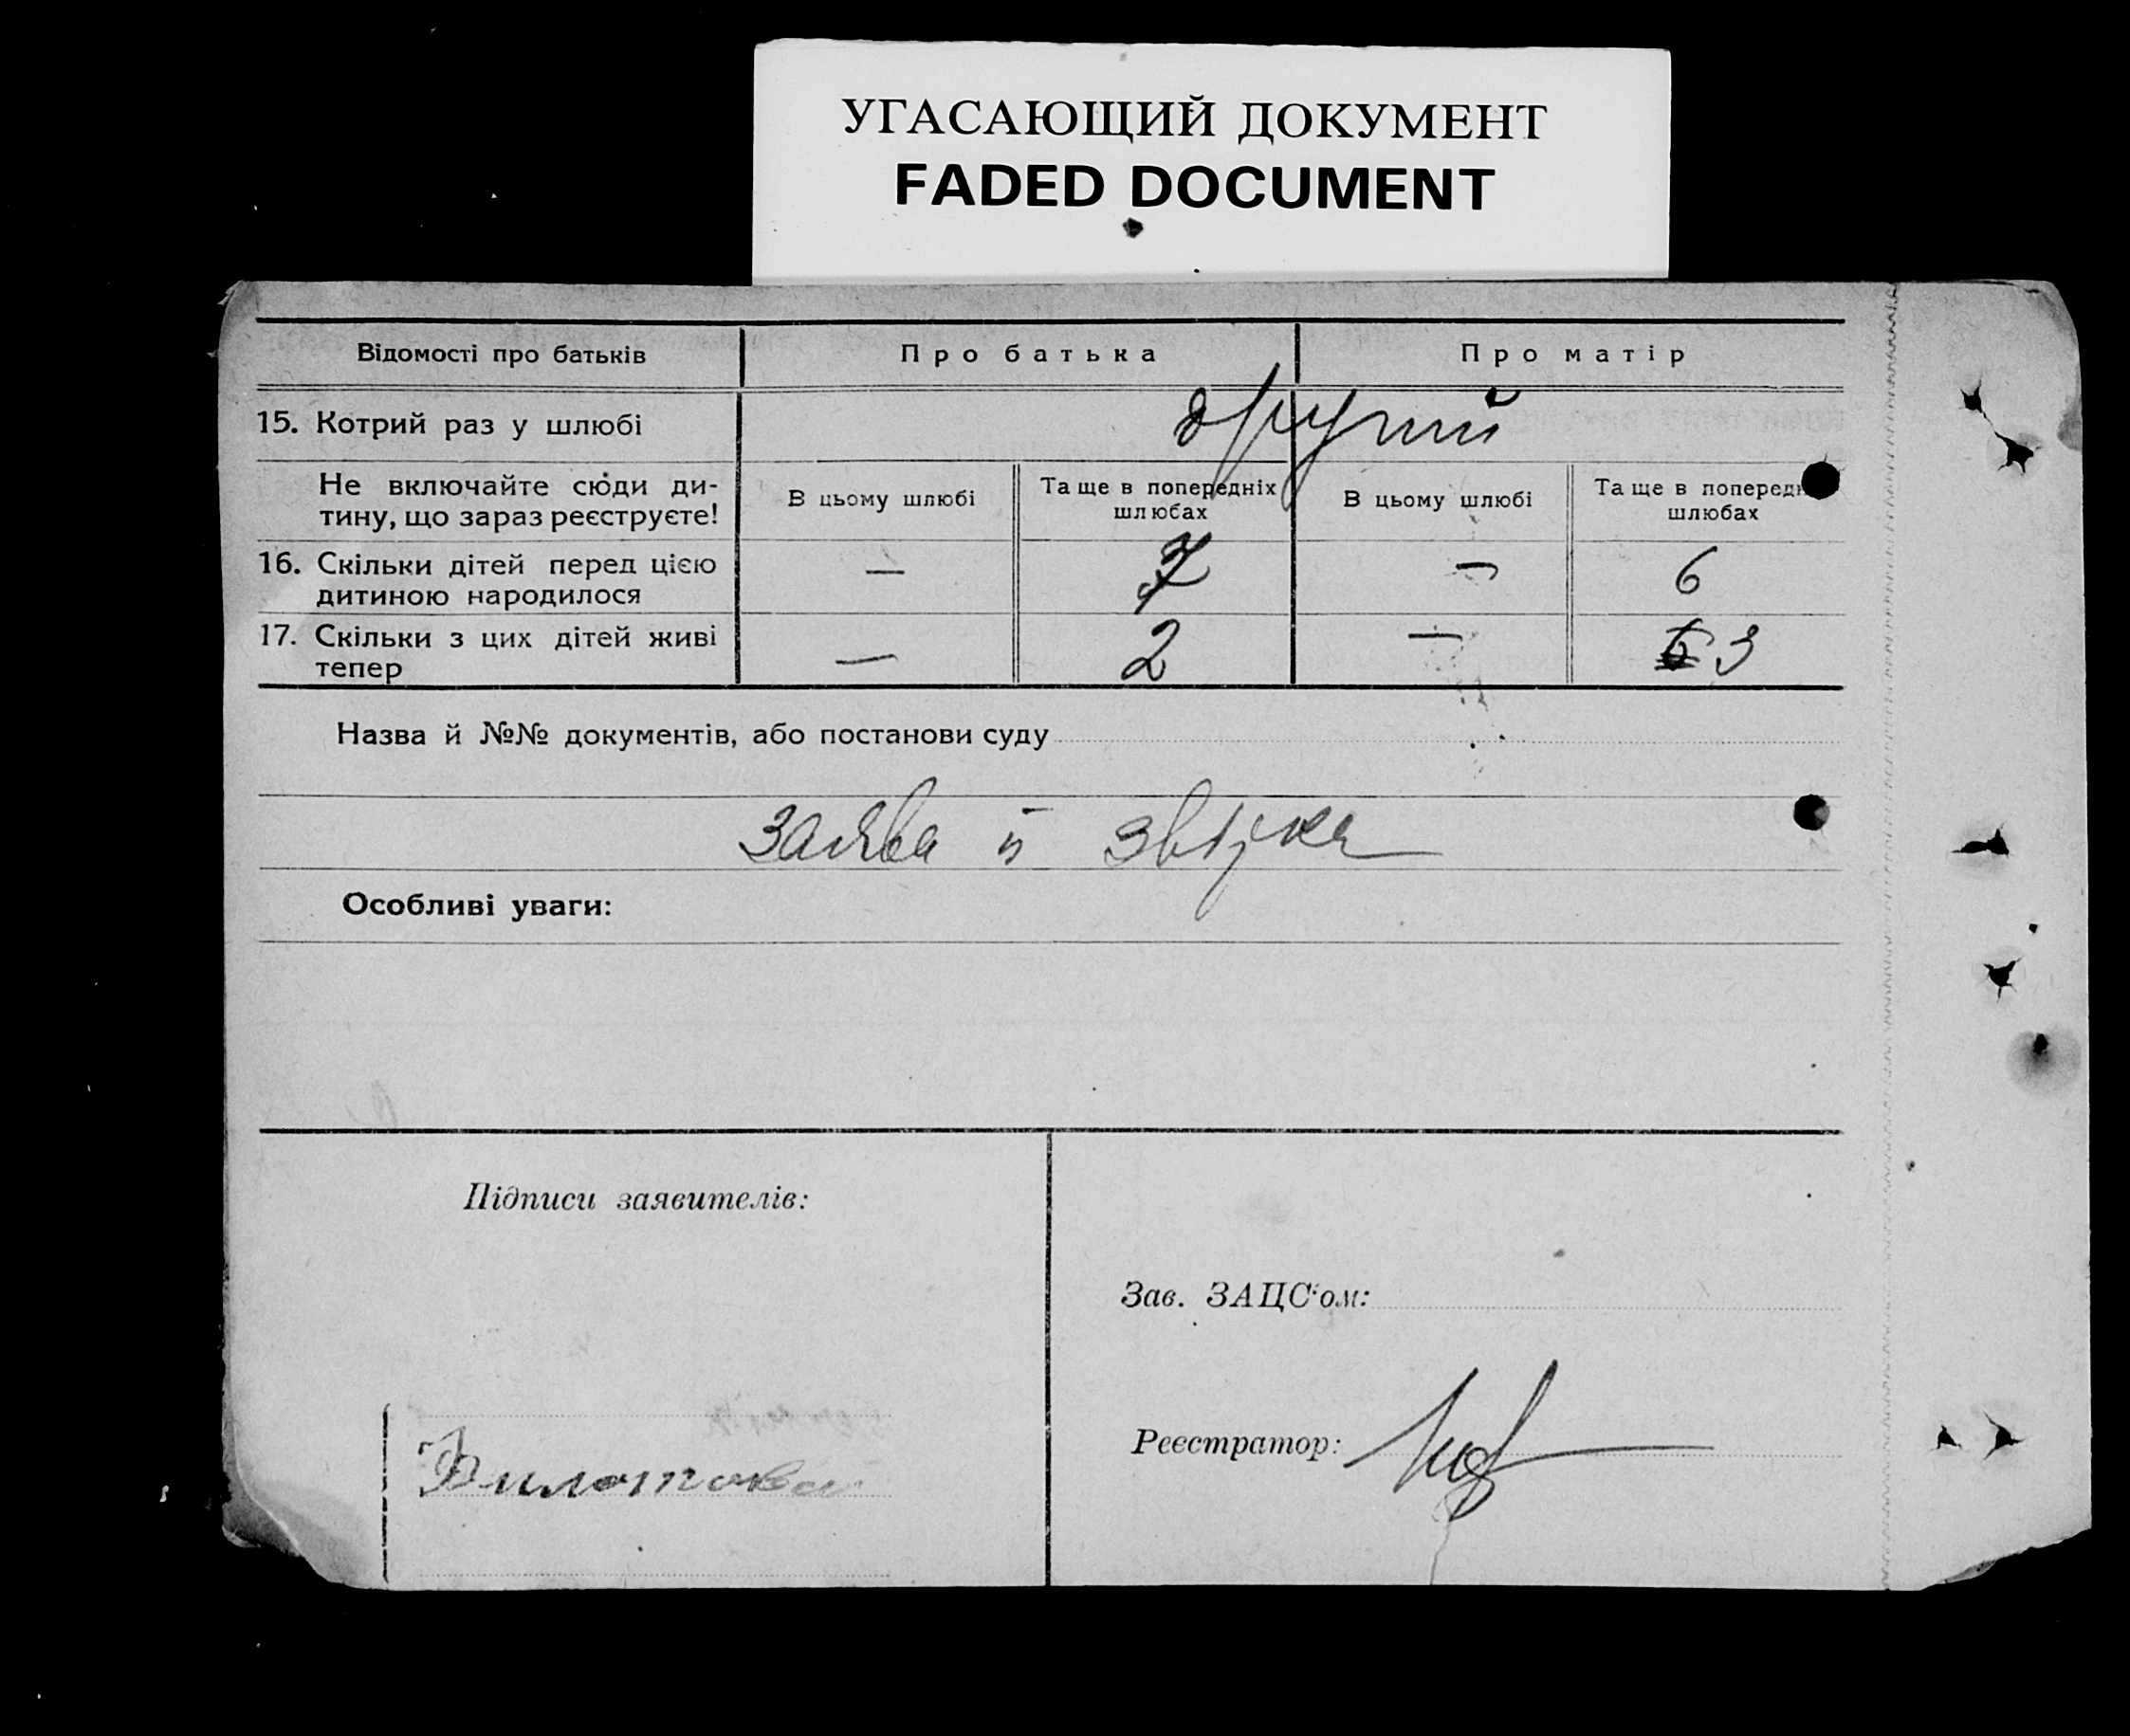 УГАСАЮЩИЙ ДОКУМЕНТ
FADED DOCUMENT
Відомості про батьків Про батька Про матір
15. Котрий раз у шлюбі другий
Не включайте сюди ди-
тину, що зараз реєструєте!
В цьому шлюбі Та ще в попередніх
шлюбах
В цьому шлюбі Та ще в поперед
шлюбах
16. Скільки дітей перед цією
дитиною народилося
— 7 — 6
17. Скільки з цих дітей живі
тепер
— 2 — 3
Назва й №№ документів, або постанови суду
заява й
Особливі уваги:
Підписи заявителів:
Зав. ЗАЦС'ом:
Реєстратор: